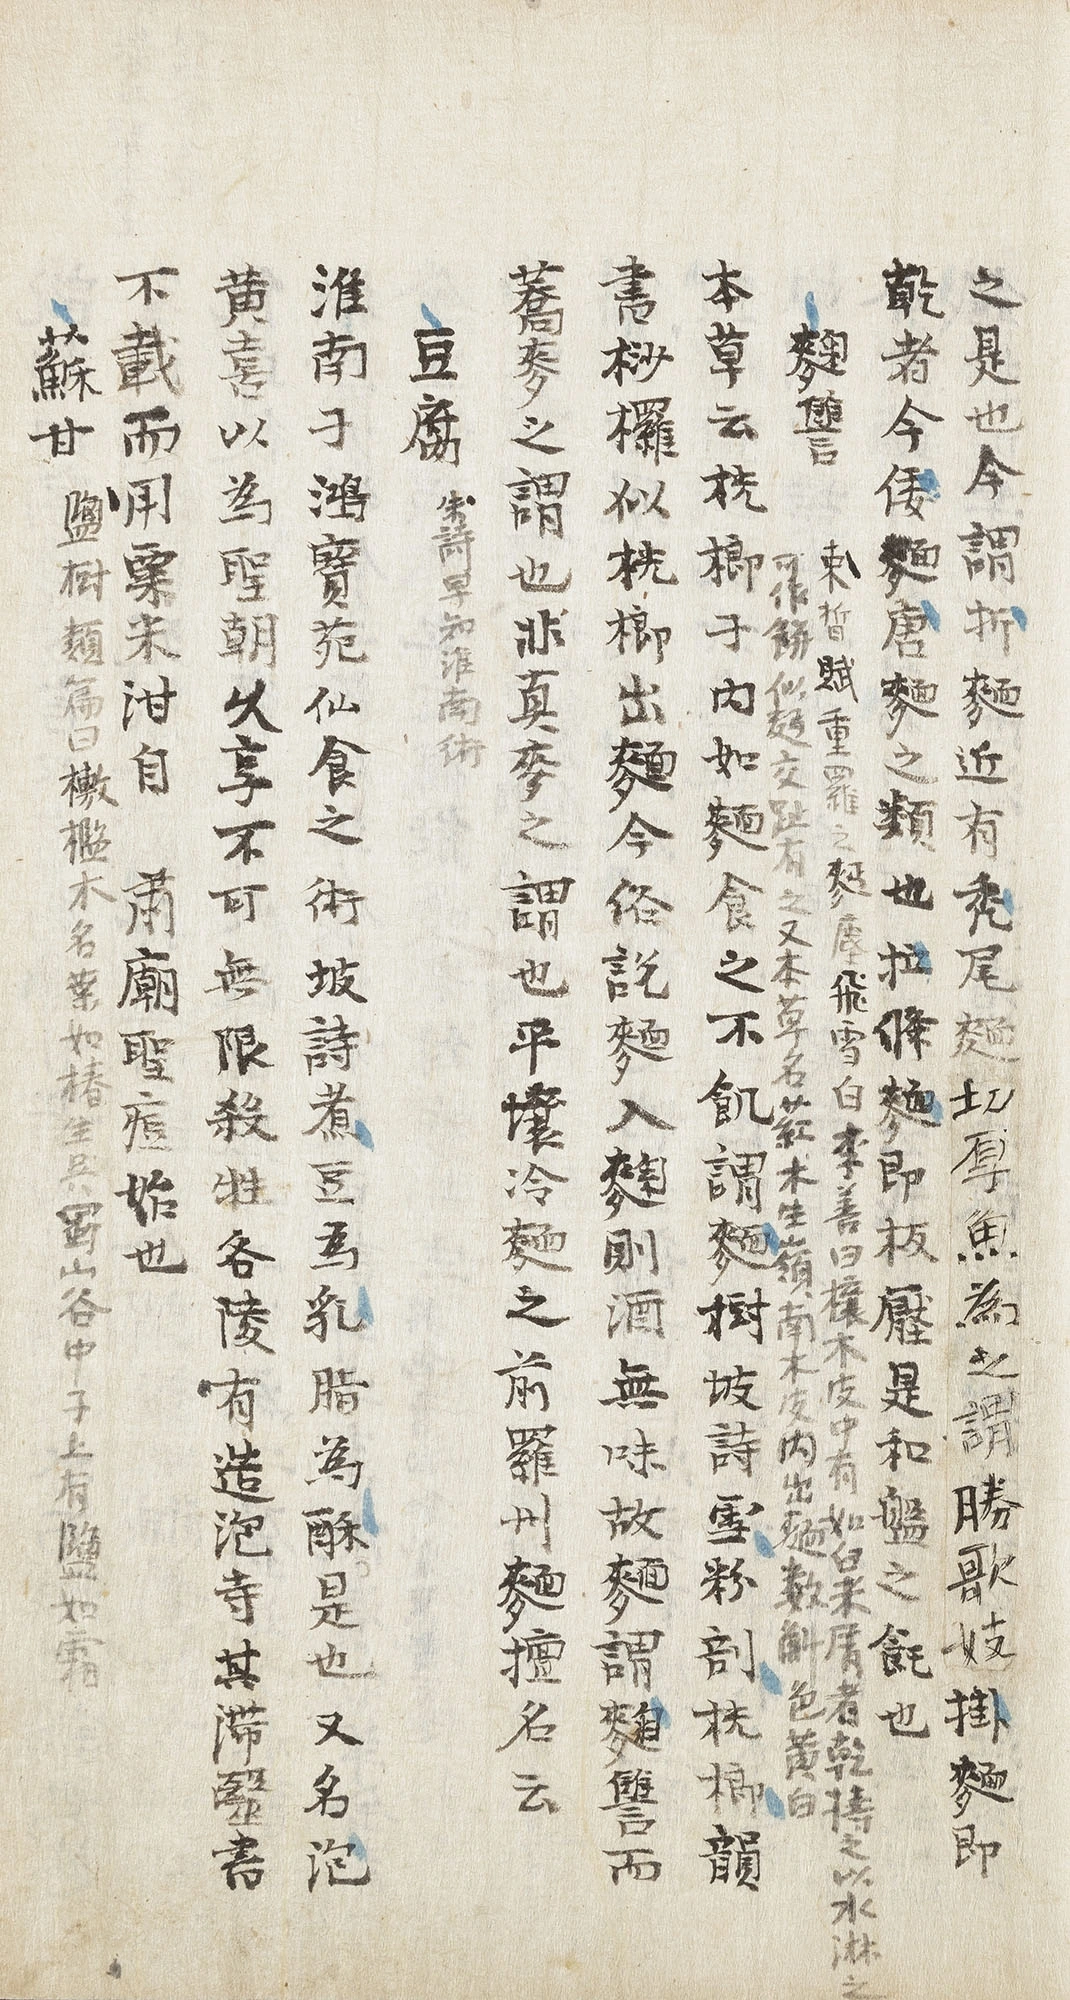 之是也今謂折麵近有禿尾麵切厚魚為之謂勝歌妓掛麵即
乾者今倭麵唐麵之類也拉條麵即板壓是和盤之飥也
麴讐
束晳賦重羅之麵塵飛雪白李善曰欀木皮中有如白米屑者乾擣之以水淋之
可作餅似麵交趾有之又本草名莪木生嶺南木皮內出麵數斛色黃白
本草云桄榔子內如麵食之不飢謂麵樹坡詩雪粉剖桄榔韻
書桫欏似桄榔出麵今俗說麵入麴則酒無味故麵謂麴讐而
蕎麥之謂也非真麥之謂也平壤冷麵之前羅州麵擅名云
豆腐
朱詩早知淮南術
淮南子鴻寶苑仙食之術坡詩煮豆為乳脂為酥是也又名泡
黃喜以為聖朝久享不可無限殺牲各陵有造泡寺其滯毉書
不載而用粟米泔自 肅廟聖痘始也
蘇甘
鹽樹類篇曰橵檻木名葉如椿生吳蜀山谷中子上有鹽如霜